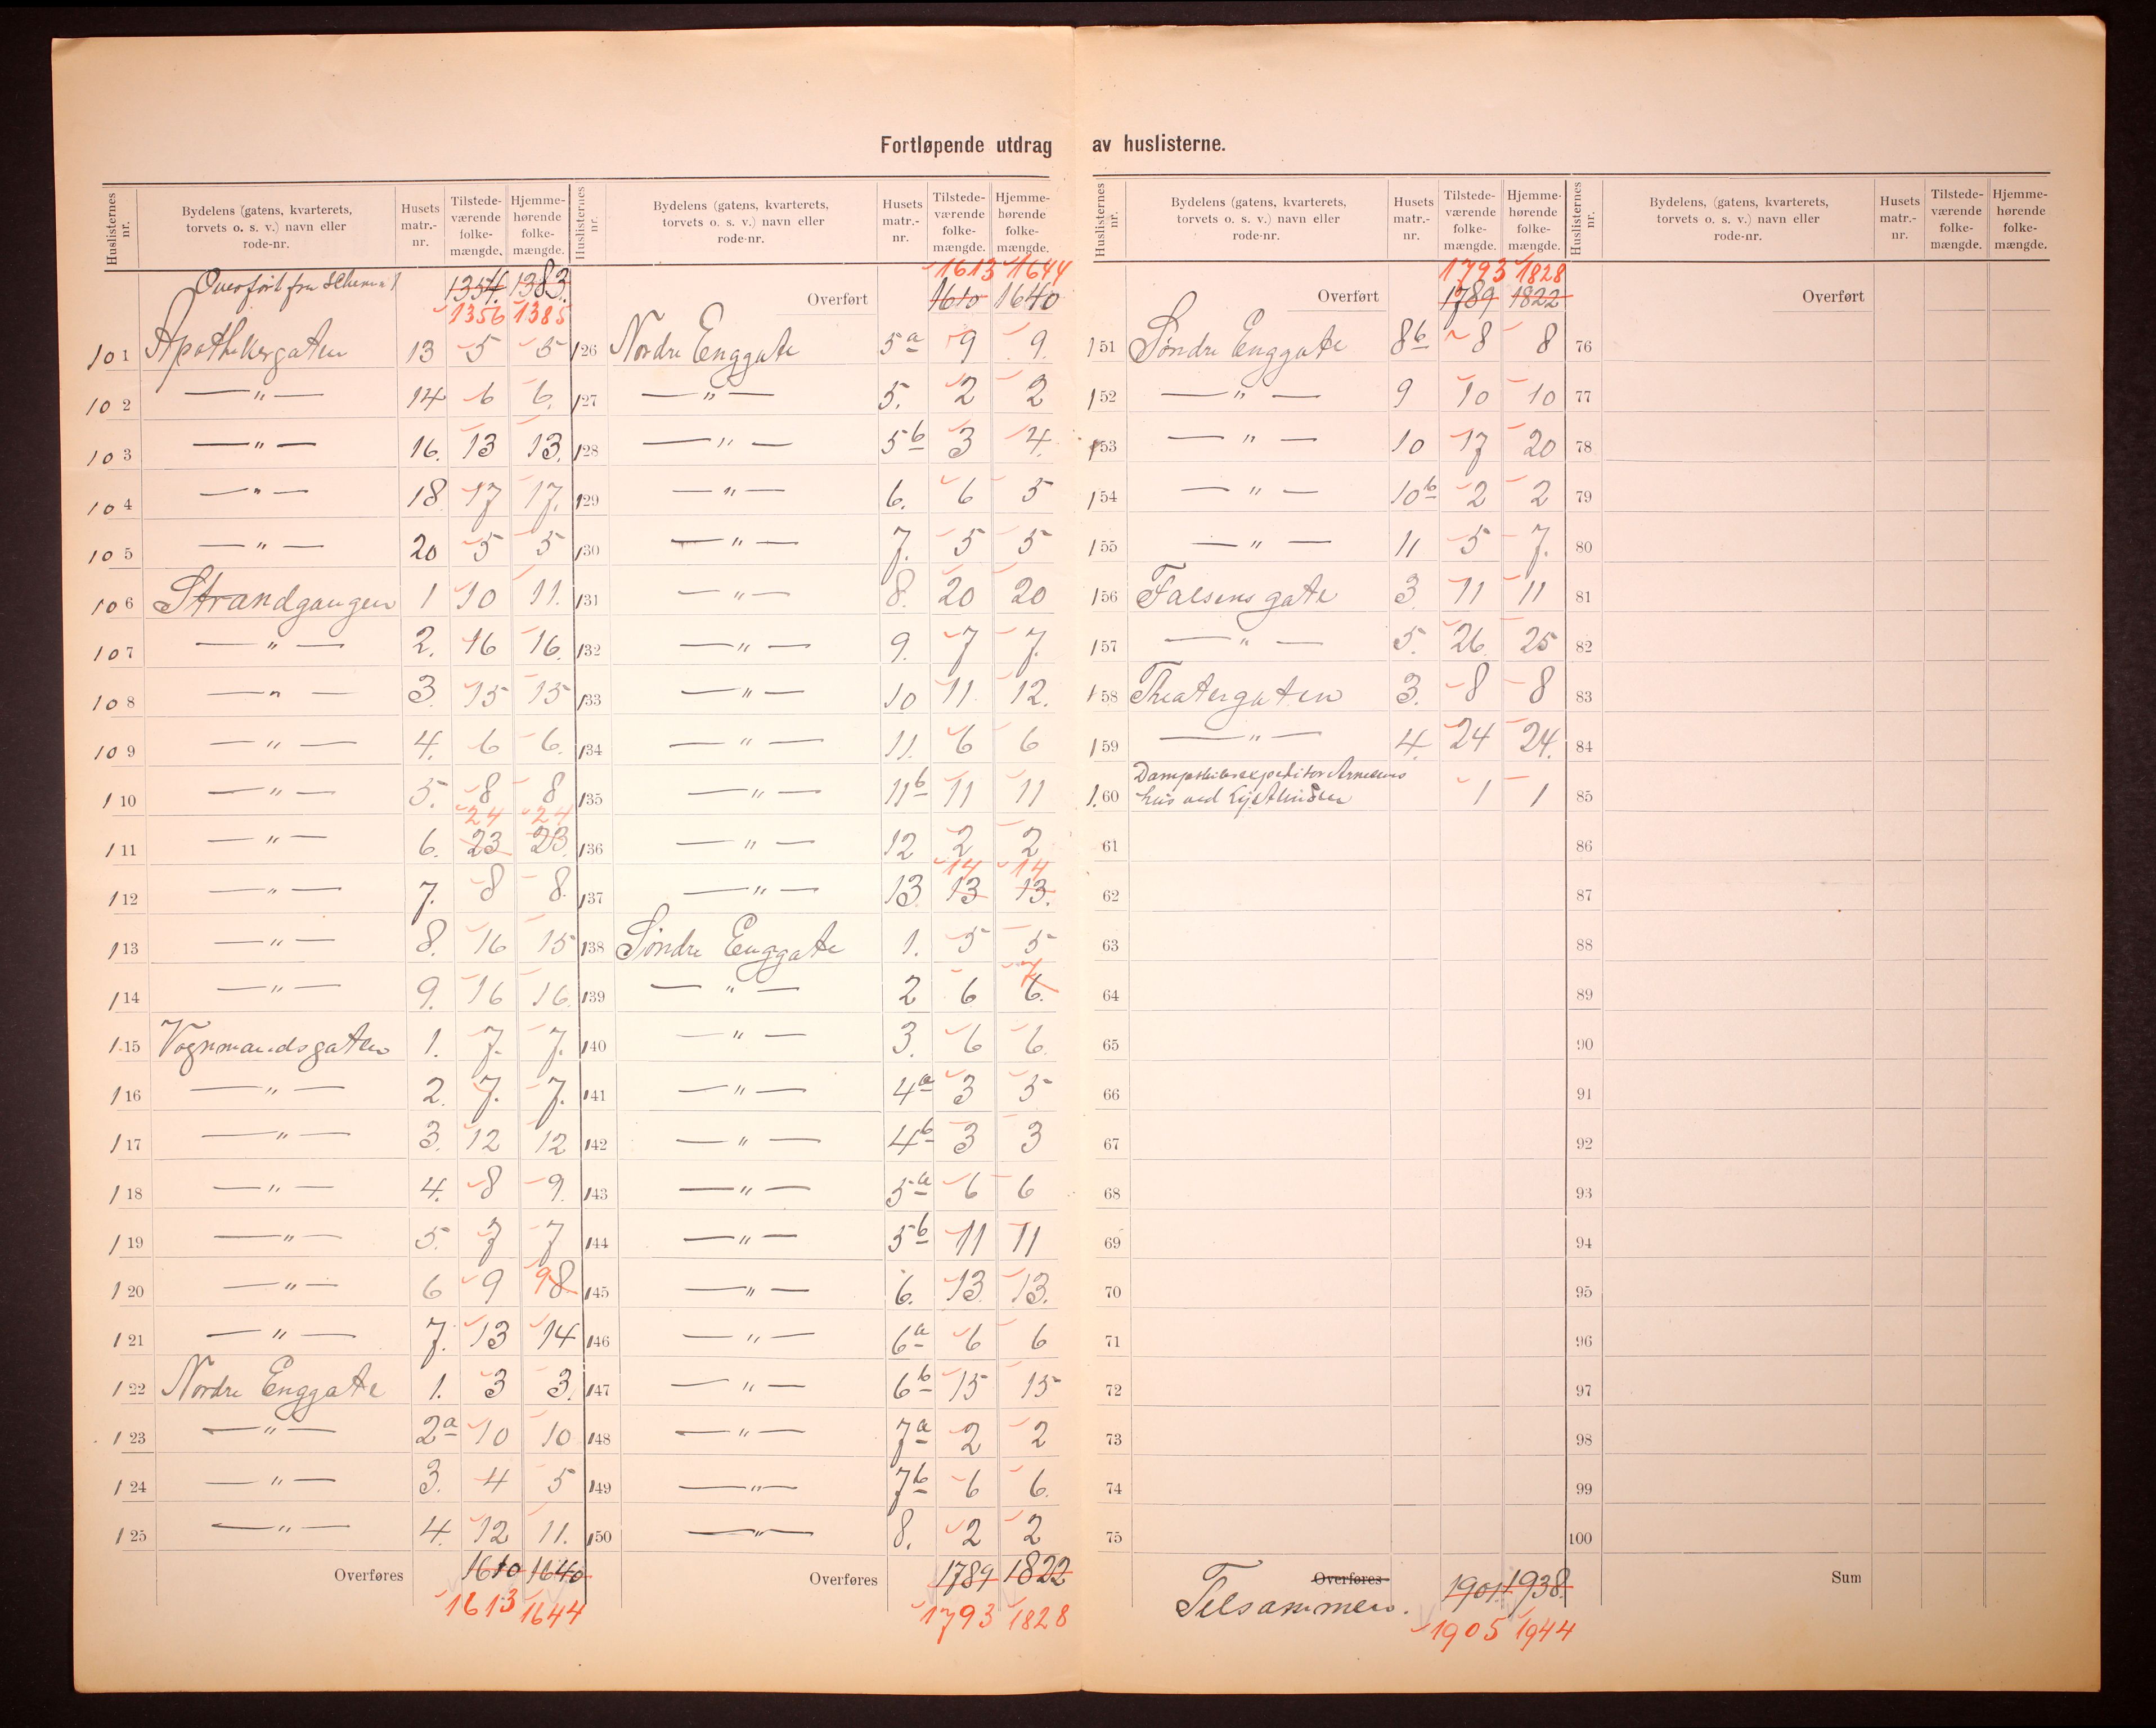 Fortløpende utdrag av huslisterne.
Huslisternes nr. | Bydelens (gatens, kvarterets, torvets o. s. v.) navn eller rode-nr. | Husets matr.-nr. | Tilstede-værende folke-mængde. | Hjemme-hørende folke-mængde.
Overført fra Skema 1 1354. 1383.
1356 1385
101 Apothekergaten 13 5 5
102 —„— 14 6 6.
103 —„— 16. 13 13.
104 —„— 18 17 17.
105 —„— 20 5 5
106 Strandgangen 1 10 11.
107 —„— 2. 16 16.
108 —„— 3. 15 15
109 —„— 4. 6 6.
110 —„— 5. 8 8
24 24
111 —„— 6. 23 23.
112 —„— 7. 8 8.
113 —„— 8. 16 15
114 —„— 9. 16 16.
115 Vognmandsgaten 1. 7. 7.
116 —„— 2. 7. 7.
117 —„— 3. 12 12
118 —„— 4. 8 9.
119 —„— 5. 7 7
120 —„— 6 9 9 8
121 —„— 7. 13 14
122 Nordre Enggate 1. 3 3.
123 —„— 2a 10 10
124 —„— 3. 4 5
125 —„— 4. 12 11.
Overføres 1610 1640
1613 1644
Huslisternes nr. | Bydelens (gatens, kvarterets, torvets o. s. v.) navn eller rode-nr. | Husets matr.-nr. | Tilstede-værende folke-mængde. | Hjemme-hørende folke-mængde.
1613 1644
Overført 1610 1640
126 Nordre Enggate 5a 9 9.
127 —„— 5. 2 2
128 —„— 5b 3 4.
129 —„— 6. 6 5
130 —„— 7. 5 5
131 —„— 8. 20 20
132 —„— 9. 7 7.
133 —„— 10 11 12.
134 —„— 11. 6 6
135 —„— 11b 11 11
136 —„— 12 2 2
14 14
137 —„— 13 13 13.
138 Søndre Enggate 1. 5 5
7
139 —„— 2 6 6.
140 —„— 3. 6 6.
141 —„— 4a 3 5
142 —„— 4b 3 3
143 —„— 5a 6 6
144 —„— 5b 11 11
145 —„— 6. 13 13.
146 —„— 6a 6 6
147 —„— 6b 15 15
148 —„— 7a 2 2
149 —„— 7b 6 6.
150 —„— 8. 2 2
Overføres 1789 1822
1793 1828
Huslisternes nr. | Bydelens (gatens, kvarterets, torvets o. s. v.) navn eller rode-nr. | Husets matr.-nr. | Tilstede-værende folke-mængde. | Hjemme-hørende folke-mængde.
1793 1828
Overført 1789 1822
151 Søndre Enggate 8b 8 8
152 —„— 9 10 10
153 —„— 10 17 20
154 —„— 10b 2 2
155 —„— 11 5 7.
156 Falsens gate 3. 11 11
157 —„— 5. 26. 25
158 Theatergaten 3. 8 8
159 —„— 4. 24 24.
Dampskibsexpeditør
160 hus ved 1 1
61
62
63
64
65
66
67
68
69
70
71
72
73
74
75
Overføres
Tilsammen. 1901. 1938.
1905 1944
Huslisternes nr. | Bydelens, (gatens, kvarterets, torvets o. s. v.) navn eller rode-nr. | Husets matr.-nr. | Tilstede-værende folke-mængde. | Hjemme-hørende folke-mængde.
Overført
76
77
78
79
80
81
82
83
84
85
86
87
88
89
90
91
92
93
94
95
96
97
98
99
100
Sum